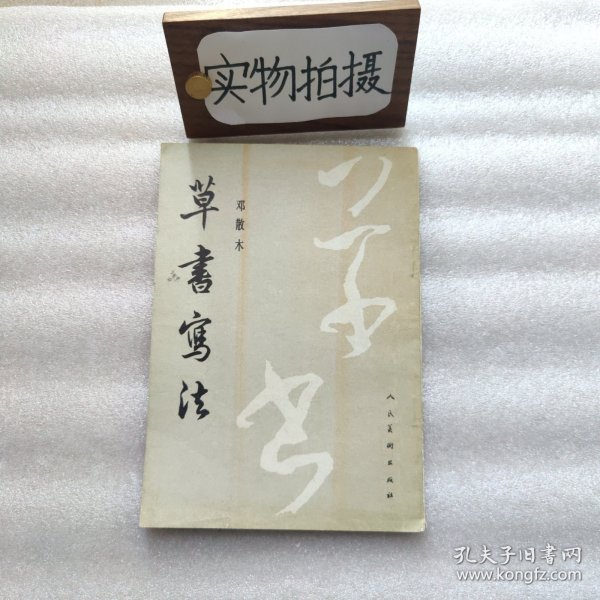 实物拍摄
草書寫法
邓散木
草书
人民美術出版社
孔夫子旧書网
www.kongfz.com